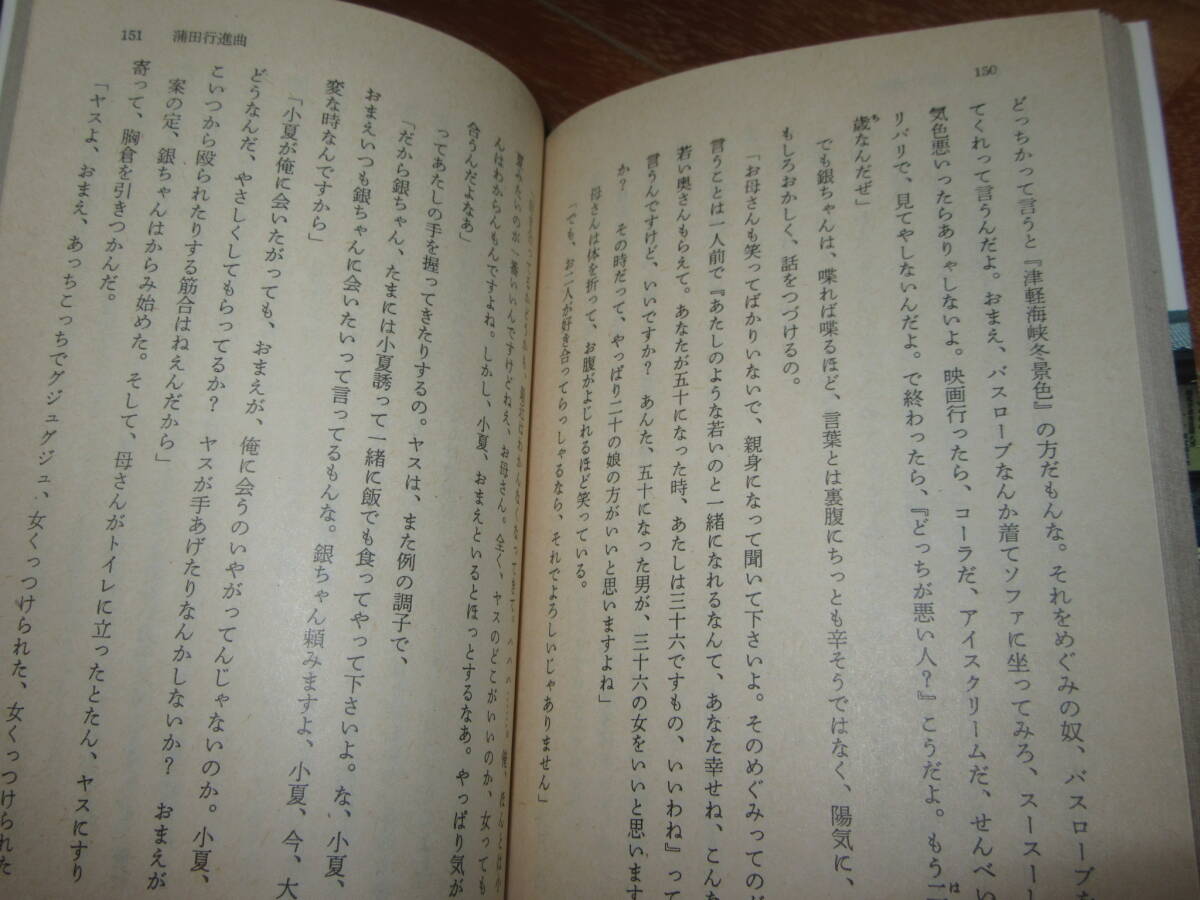 150
どっちかって言うと『津軽海峡冬景色』の方だもんな。それをめぐみの奴、バスローブな
てくれって言うんだよ。おまえ、バスローブなんか着てソファに坐ってみろ、スースーし
気色悪いったらありゃしないよ。映画行ったら、コーラだ、アイスクリームだ、せんべい
リバリで、見てやしないんだよ。で終わったら、『どっちが悪い人？』こうだよ。もう二
は
歳なんだぜ」
ち
でも銀ちゃんは、喋れば喋るほど、言葉とは裏腹にちっとも辛そうではなく、陽気に、
もしろおかしく、話をつづけるの。
「お母さんも笑ってばかりいないで、親身になって聞いて下さいよ。そのめぐみってのど
言うことは一人前で『あたしのような若いのと一緒になれるなんて、あなた幸せね、こんな
若い奥さんもらえて。あなたが五十になった時、あたしは三十六ですもの、いいわね』って
言うんですけど、いいですか？　あんた、五十になった男が、三十六の女をいいと思います
か？　その時だって、やっぱり二十の娘の方がいいと思いますよね」
母さんは体を折って、お腹がよじれるほど笑っている。
「でも、お二人が好き合ってらっしゃるなら、それでよろしいじゃありません」
151　蒲田行進曲
夏みたいのが一番いいんですけどねえ、お母さん。全く、ヤスのどこがいいのか、女っても
んはわからんもんですよね。しかし、小夏、おまえといるとほっとするなあ。やっぱり気が
合うんだよなあ」
ってあたしの手を握ってきたりするの。ヤスは、また例の調子で、
「だから銀ちゃん、たまには小夏誘って一緒に飯でも食ってやって下さいよ。な、小夏、
おまえいつも銀ちゃんに会いたいって言ってるもんな。銀ちゃん頼みますよ、小夏、今、大
変な時なんですから」
「小夏が俺に会いたがっても、おまえが、俺に会うのいやがってんじゃないのか。小夏、
どうなんだ、やさしくしてもらってるか？　ヤスが手あげたりなんかしないか？　おまえが
こいつから殴られたりする筋合はねえんだから」
案の定、銀ちゃんはからみ始めた。そして、母さんがトイレに立ったとたん、ヤスにすり
寄って、胸倉を引きつかんだ。
「ヤスよ、おまえ、あっちこっちでグジュグジュ、女くっつけられた、女くっつけられた